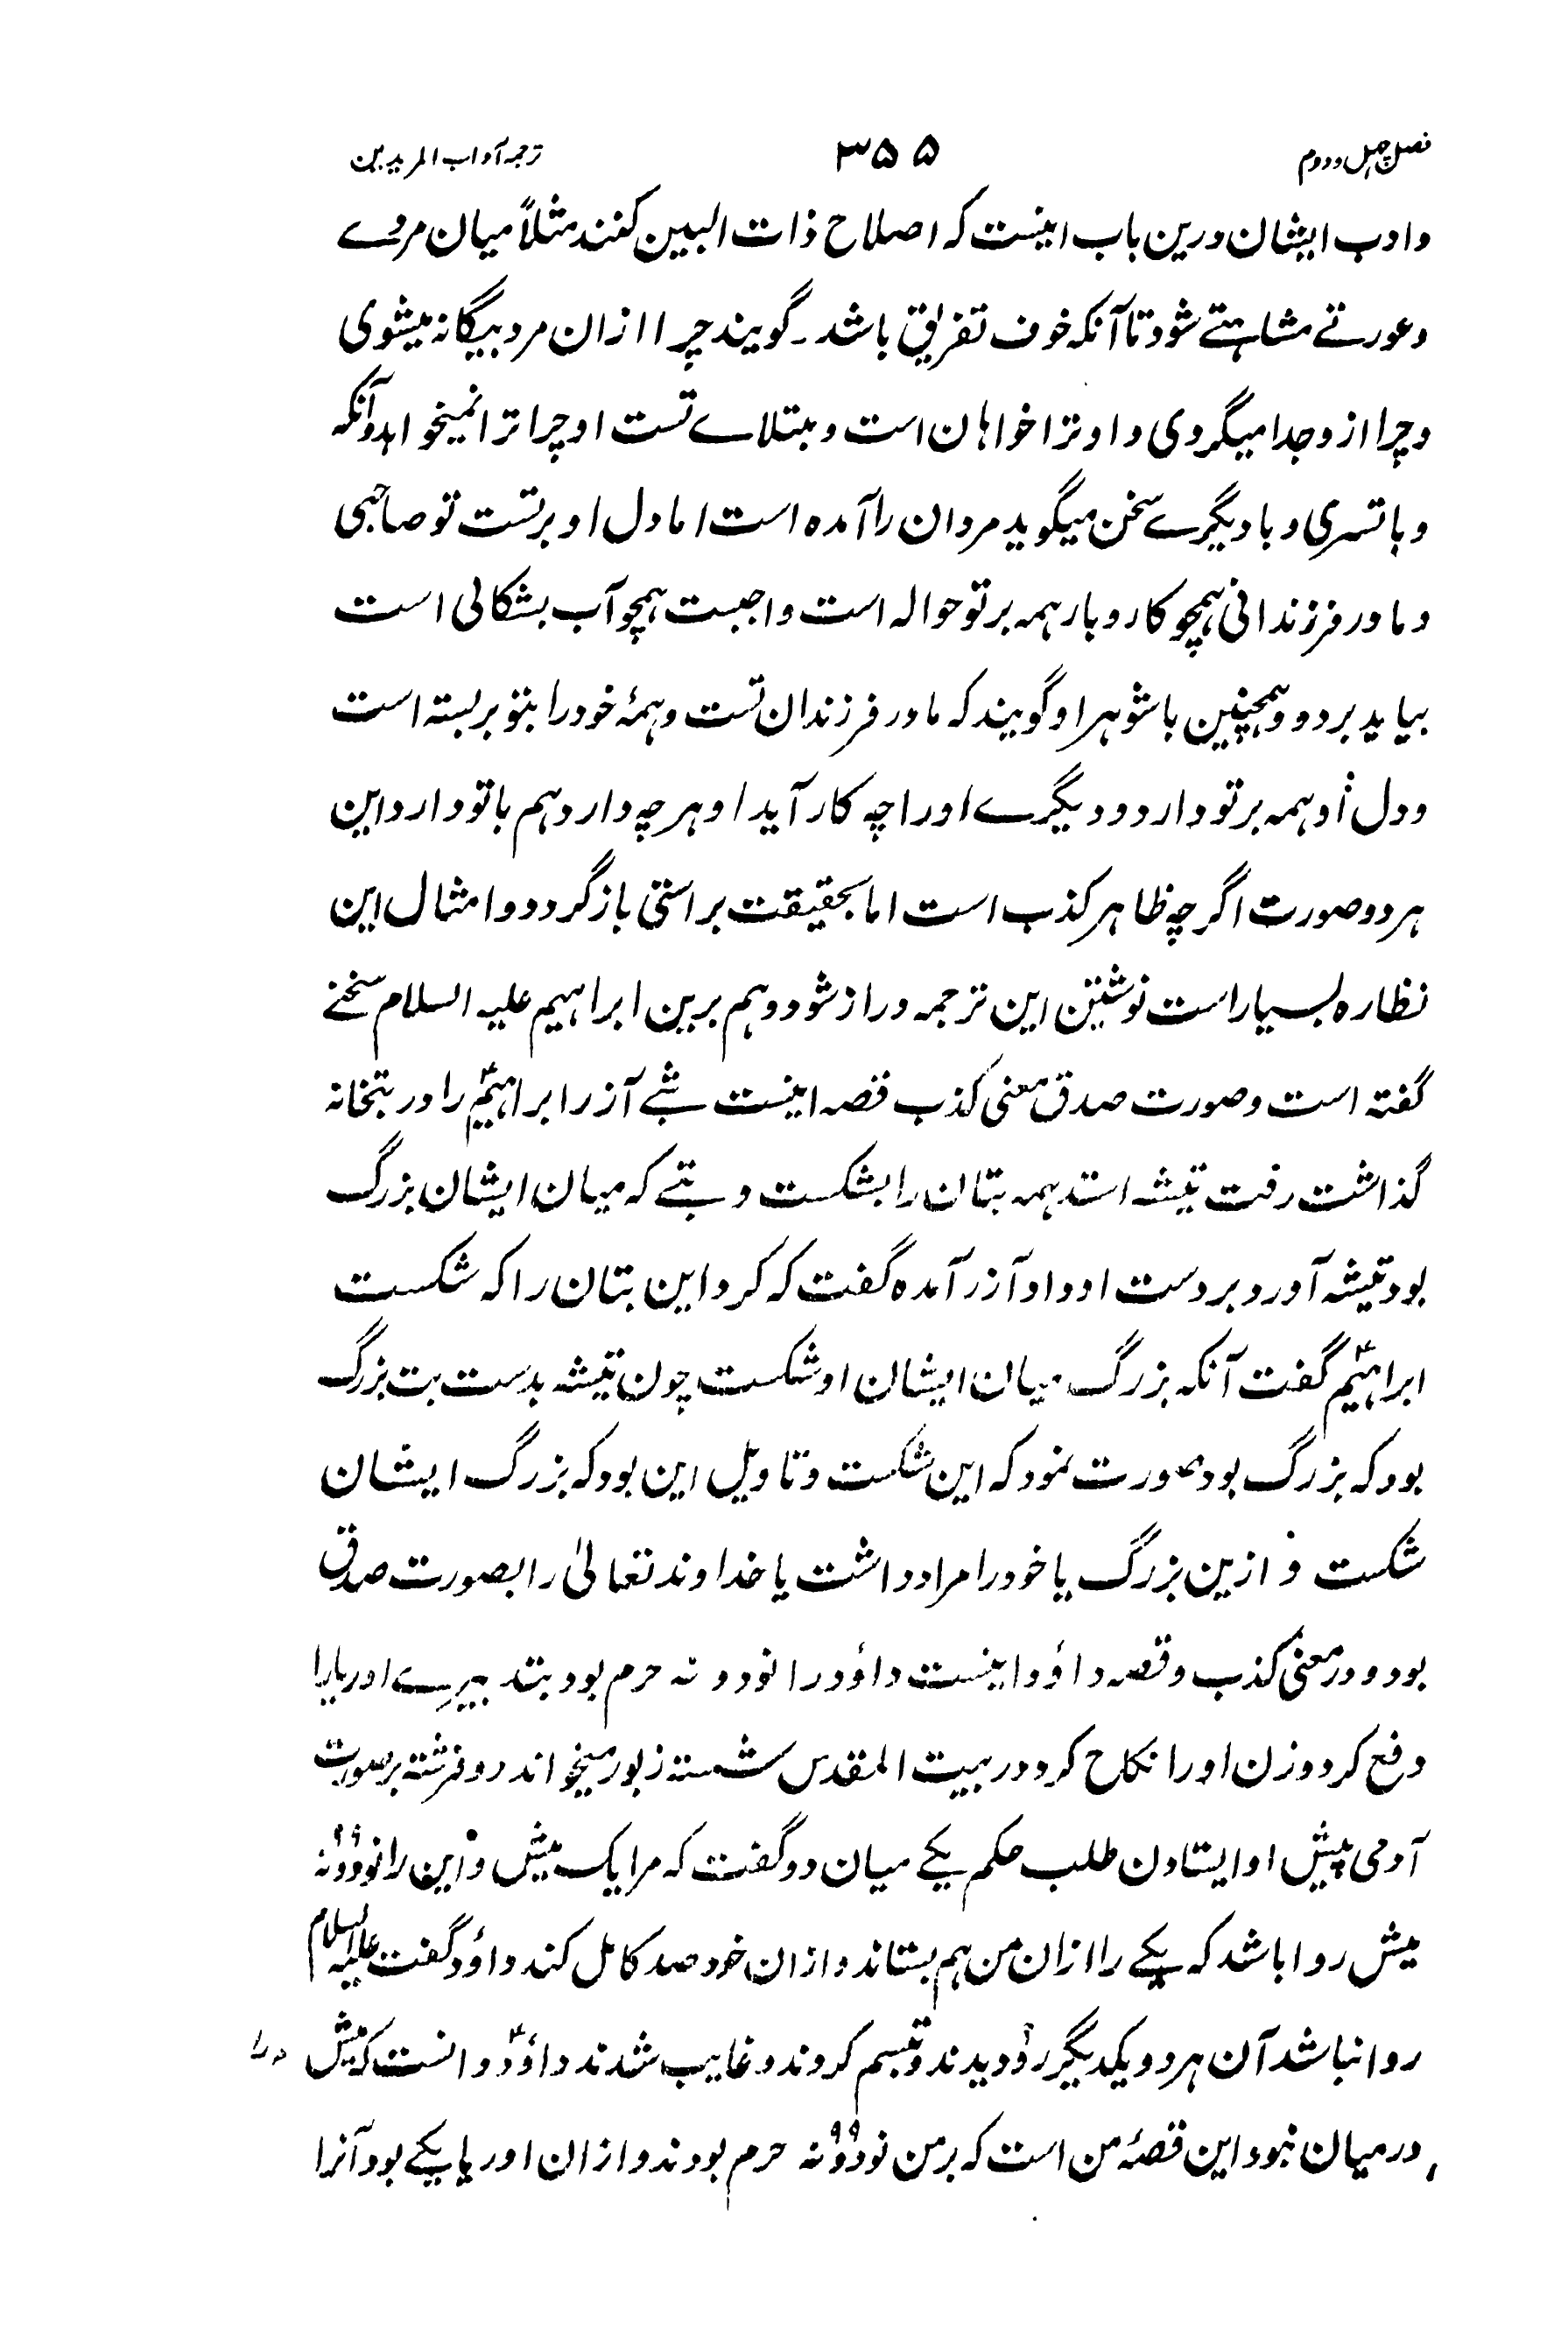 فصل چهل و دوم ۳۵۵ ترجمه آداب المریدین
و ادب ایشان درین باب اینست که اصلاح ذات البین کنند مثلاً میان مردے
و عورتے مشاہتے شود تا آنکه خوف تفریق باشد۔ گویند چرا ازان مرد بیگانه میشوی
و چرا از و جدا میگردی و او ترا خواهان است و مبتلاے تست او چرا ترا نمیخواهد و آنکه
و با تسری و با دیگرے سخن میگوید مردان را آمده است اما دل او بر تست تو صاحبی
و مادر فرزندانی همچو کاروبار همه بر تو حواله است واجبست همچو آب بشکالی است
بیاید برود و همچنین با شوهر او گویند که مادر فرزندان تست و همهٔ خود را بتو بربسته است
و دل او همه بر تو دارد و دیگرے او را چه کار آید او هرچه دارد هم با تو دارد این
هر دو صورت اگرچه ظاهر کذب است اما بحقیقت براستی بازگردد و امثال این
نظاره بسیار است نوشتن این ترجمه دراز شود و هم برین ابراهیم علیه السلام سخنے
گفته است و صورت صدق معنی کذب قصه اینست شبے آزر ابراهیمؑ را در بتخانه
گذاشت رفت تیشه استد همه بتان را بشکست و بتے که میان ایشان بزرگ
بود تیشه آورد بر دست او داد آزر آمده گفت که کرد این بتان را که شکست
ابراهیمؑ گفت آنکه بزرگ میان ایشان او شکست چون تیشه بدست بت بزرگ
بود که بزرگ بود صورت نمود که این شکست و تاویل این بود که بزرگ ایشان
شکست و ازین بزرگ یا خود را مراد داشت یا خداوند تعالیٰ را بصورت صدق
بود و در معنی کذب و قصه داؤد اینست داؤد را نود و نه حرم بود بتدبیرے اوریا را
دفع کرد و زن او را نکاح کرد در بیت المقدس شسته زبور میخواند دو فرشته بر صورت
آدمی پیش او ایستادن طلب حکم یکے میان دو گفت که مرا یک میش و این را نود و نه
میش روا باشد که یکے را ازان من هم بستاند و ازان خود صد کامل کند داؤد گفت علیه السلام
روا نباشد آن هر دو یکدیگر رو دیدند و تبسم کردند و غایب شدند داؤدؑ دانست که میش
در میان نبود این قصهٔ من است که بر من نود و نه حرم بودند و ازان اوریا یکے بود آنرا